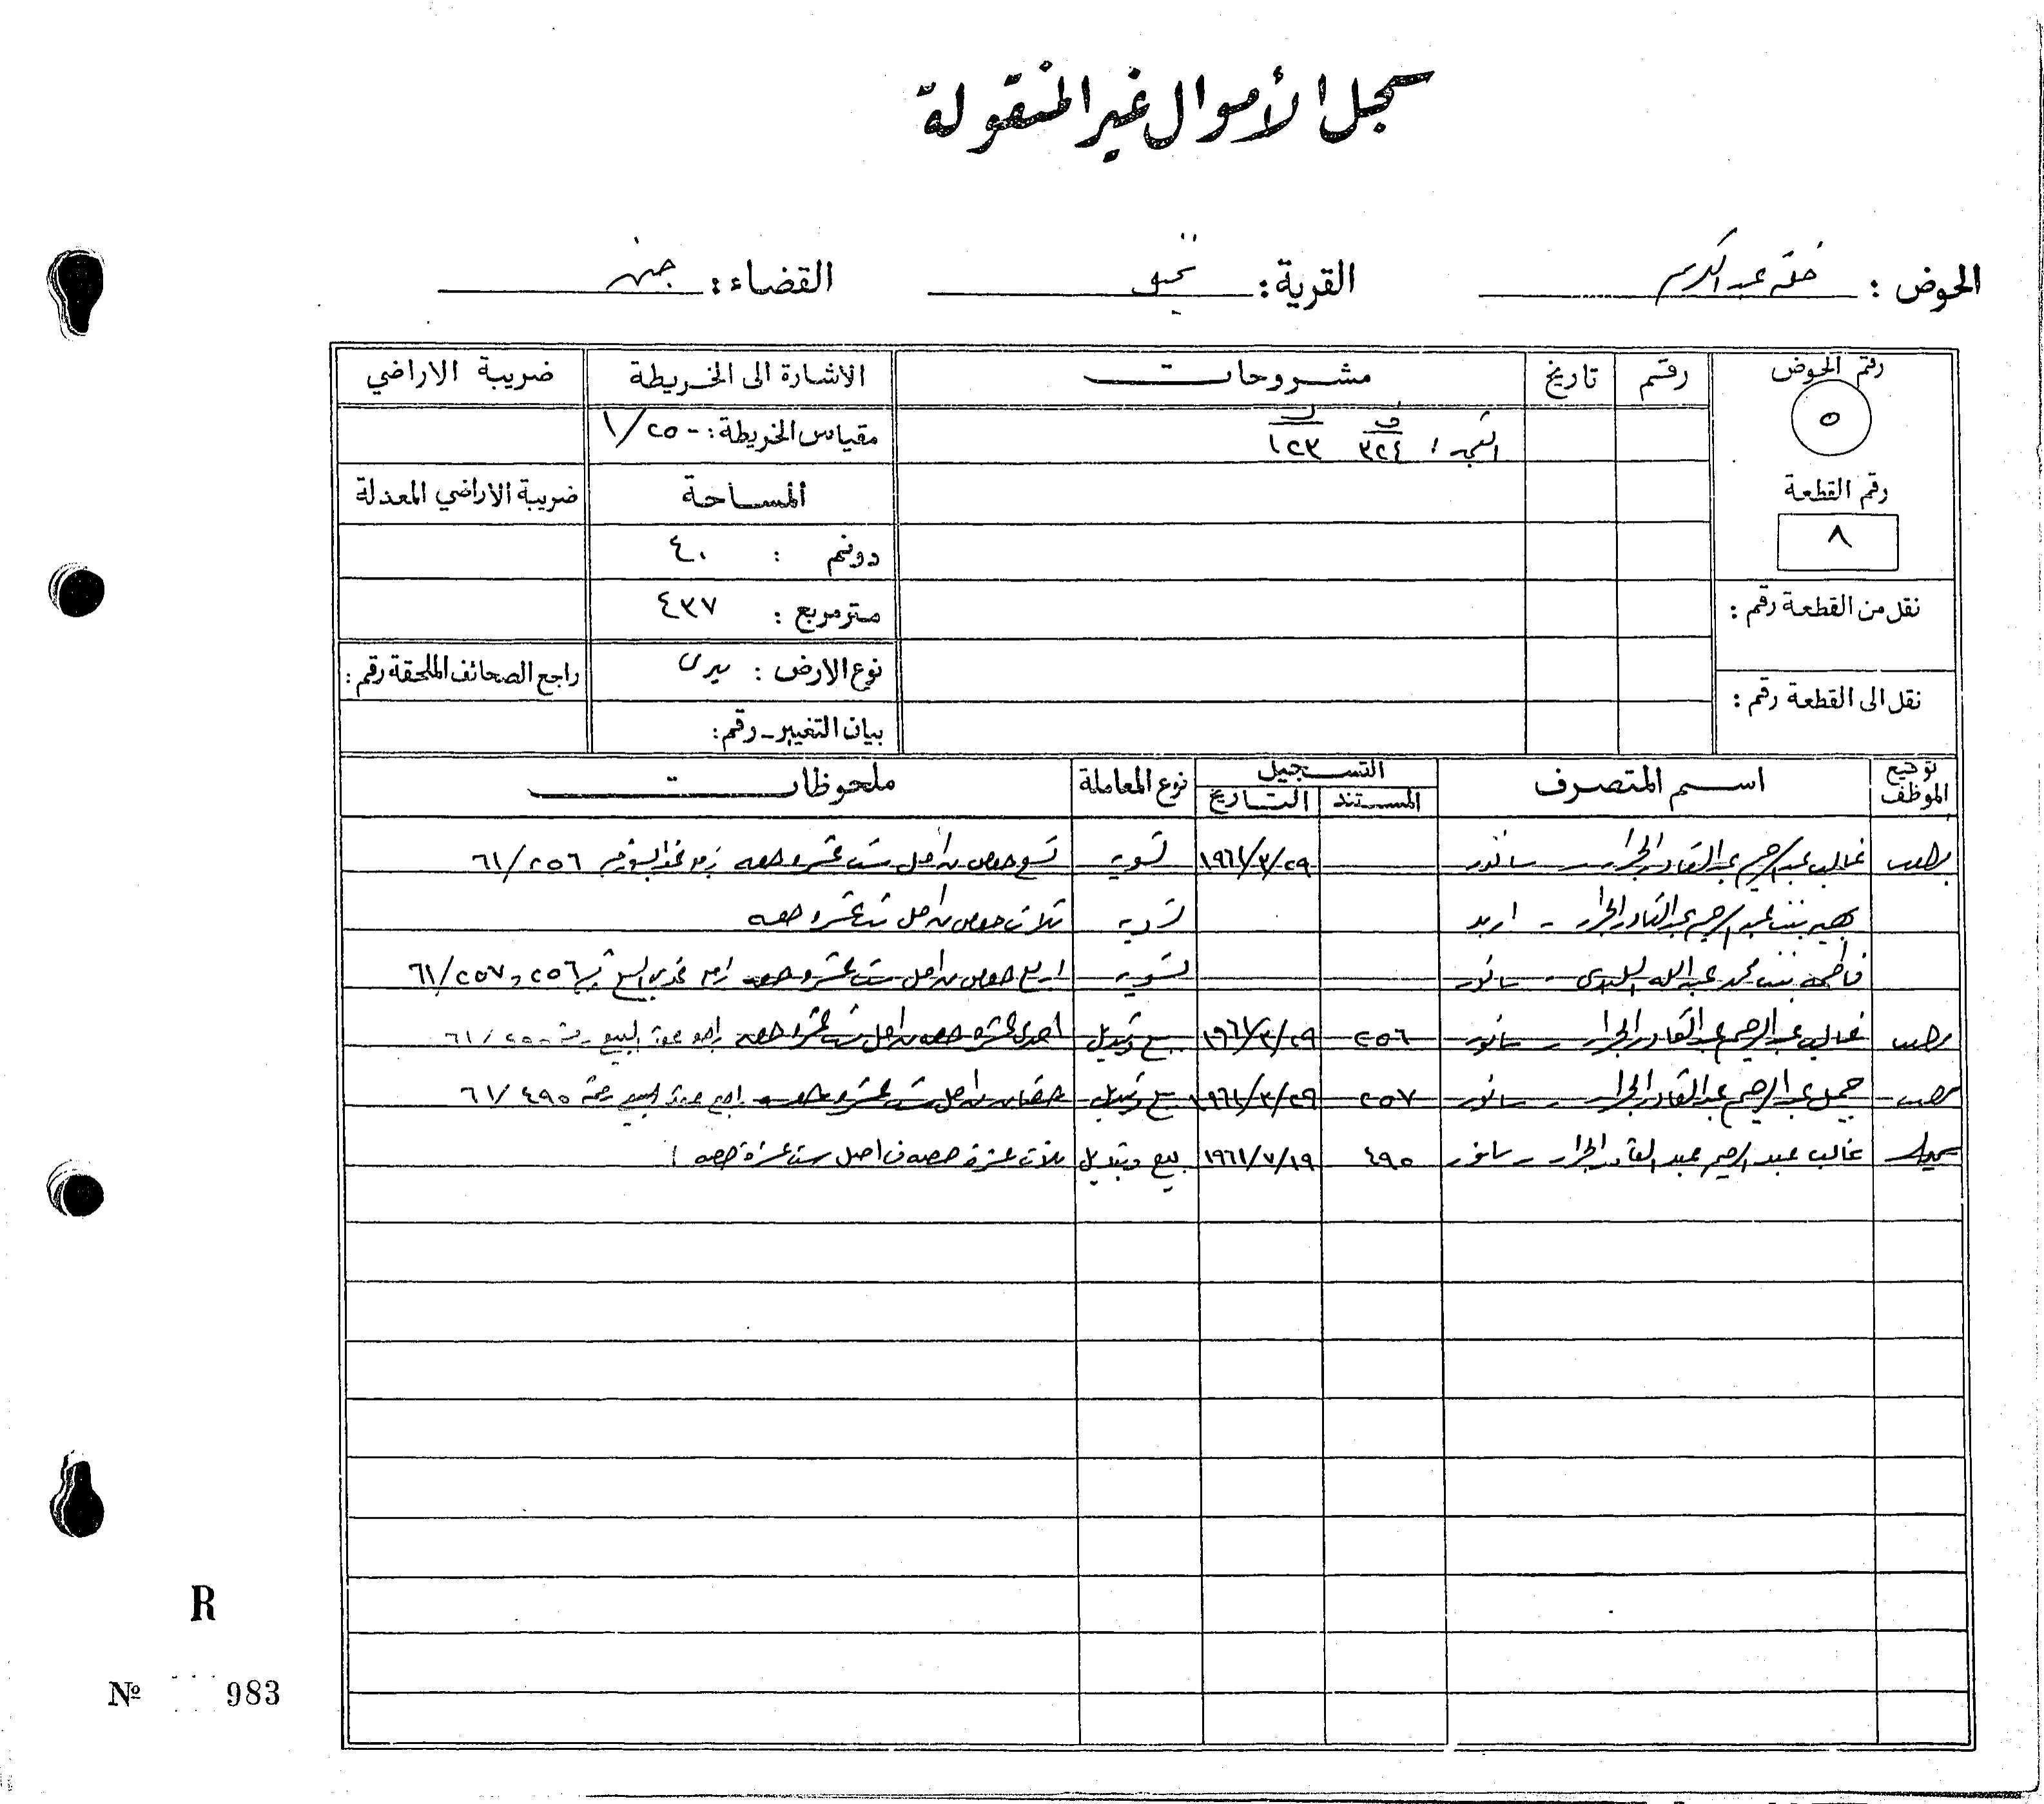 سجل الأموال غير المنقولة
الحوض : خلة عبد الكريم القرية : القضاء : جنين
رقم الحوض رقم تاريخ مشروحات الاشارة الى الخريطة ضريبة الاراضي
٥ ف ل
٣٢٤ ١٢٣ مقياس الخريطة : ١/٢٥٠٠
رقم القطعة المساحة ضريبة الاراضي المعدلة
٨ دونم : ٤٠
نقل من القطعة رقم : مترمربع : ٤٣٧
نوع الارض : ميري راجع الصحائف الملحقة رقم :
نقل الى القطعة رقم :
بيان التغيير - رقم :
توقيع الموظف اسم المتصرف التسجيل نوع المعاملة ملحوظات
المستند التاريخ
غالب عبد الرحيم عبد القادر الجرار - سانور ١٩٦١/٣/٢٩ تسوية تسع حصص من اصل ست عشرة حصه راجع عقد البيع رقم ٦١/٢٥٦
بنت عبد الرحيم عبد القادر الجرار - اربد تسوية ثلاث حصص من اصل ست عشرة حصه
فاطمه بنت محمد عبد الله - سانور تسوية اربع حصص من اصل ست عشرة حصه راجع عقدي البيع ٢٥٦ و ٦١/٢٥٧
غالب عبد الرحيم عبد القادر الجرار - سانور ٢٥٦ ١٩٦١/٣/٢٩ بيع وتبديل احدى عشرة حصه من اصل ست عشرة حصه راجع عقد البيع
جميل عبد الرحيم عبد القادر الجرار - سانور ٢٥٧ ١٩٦١/٣/٢٩ بيع وتبديل حصتان من اصل ست عشرة حصه راجع عقد البيع رقم ٦١/٤٩٥
غالب عبد الرحيم عبد القادر الجرار - سانور ٤٩٥ ١٩٦١/٧/١٩ بيع وتبديل ثلاث عشرة حصه من اصل ست عشرة حصه
R
№ 983